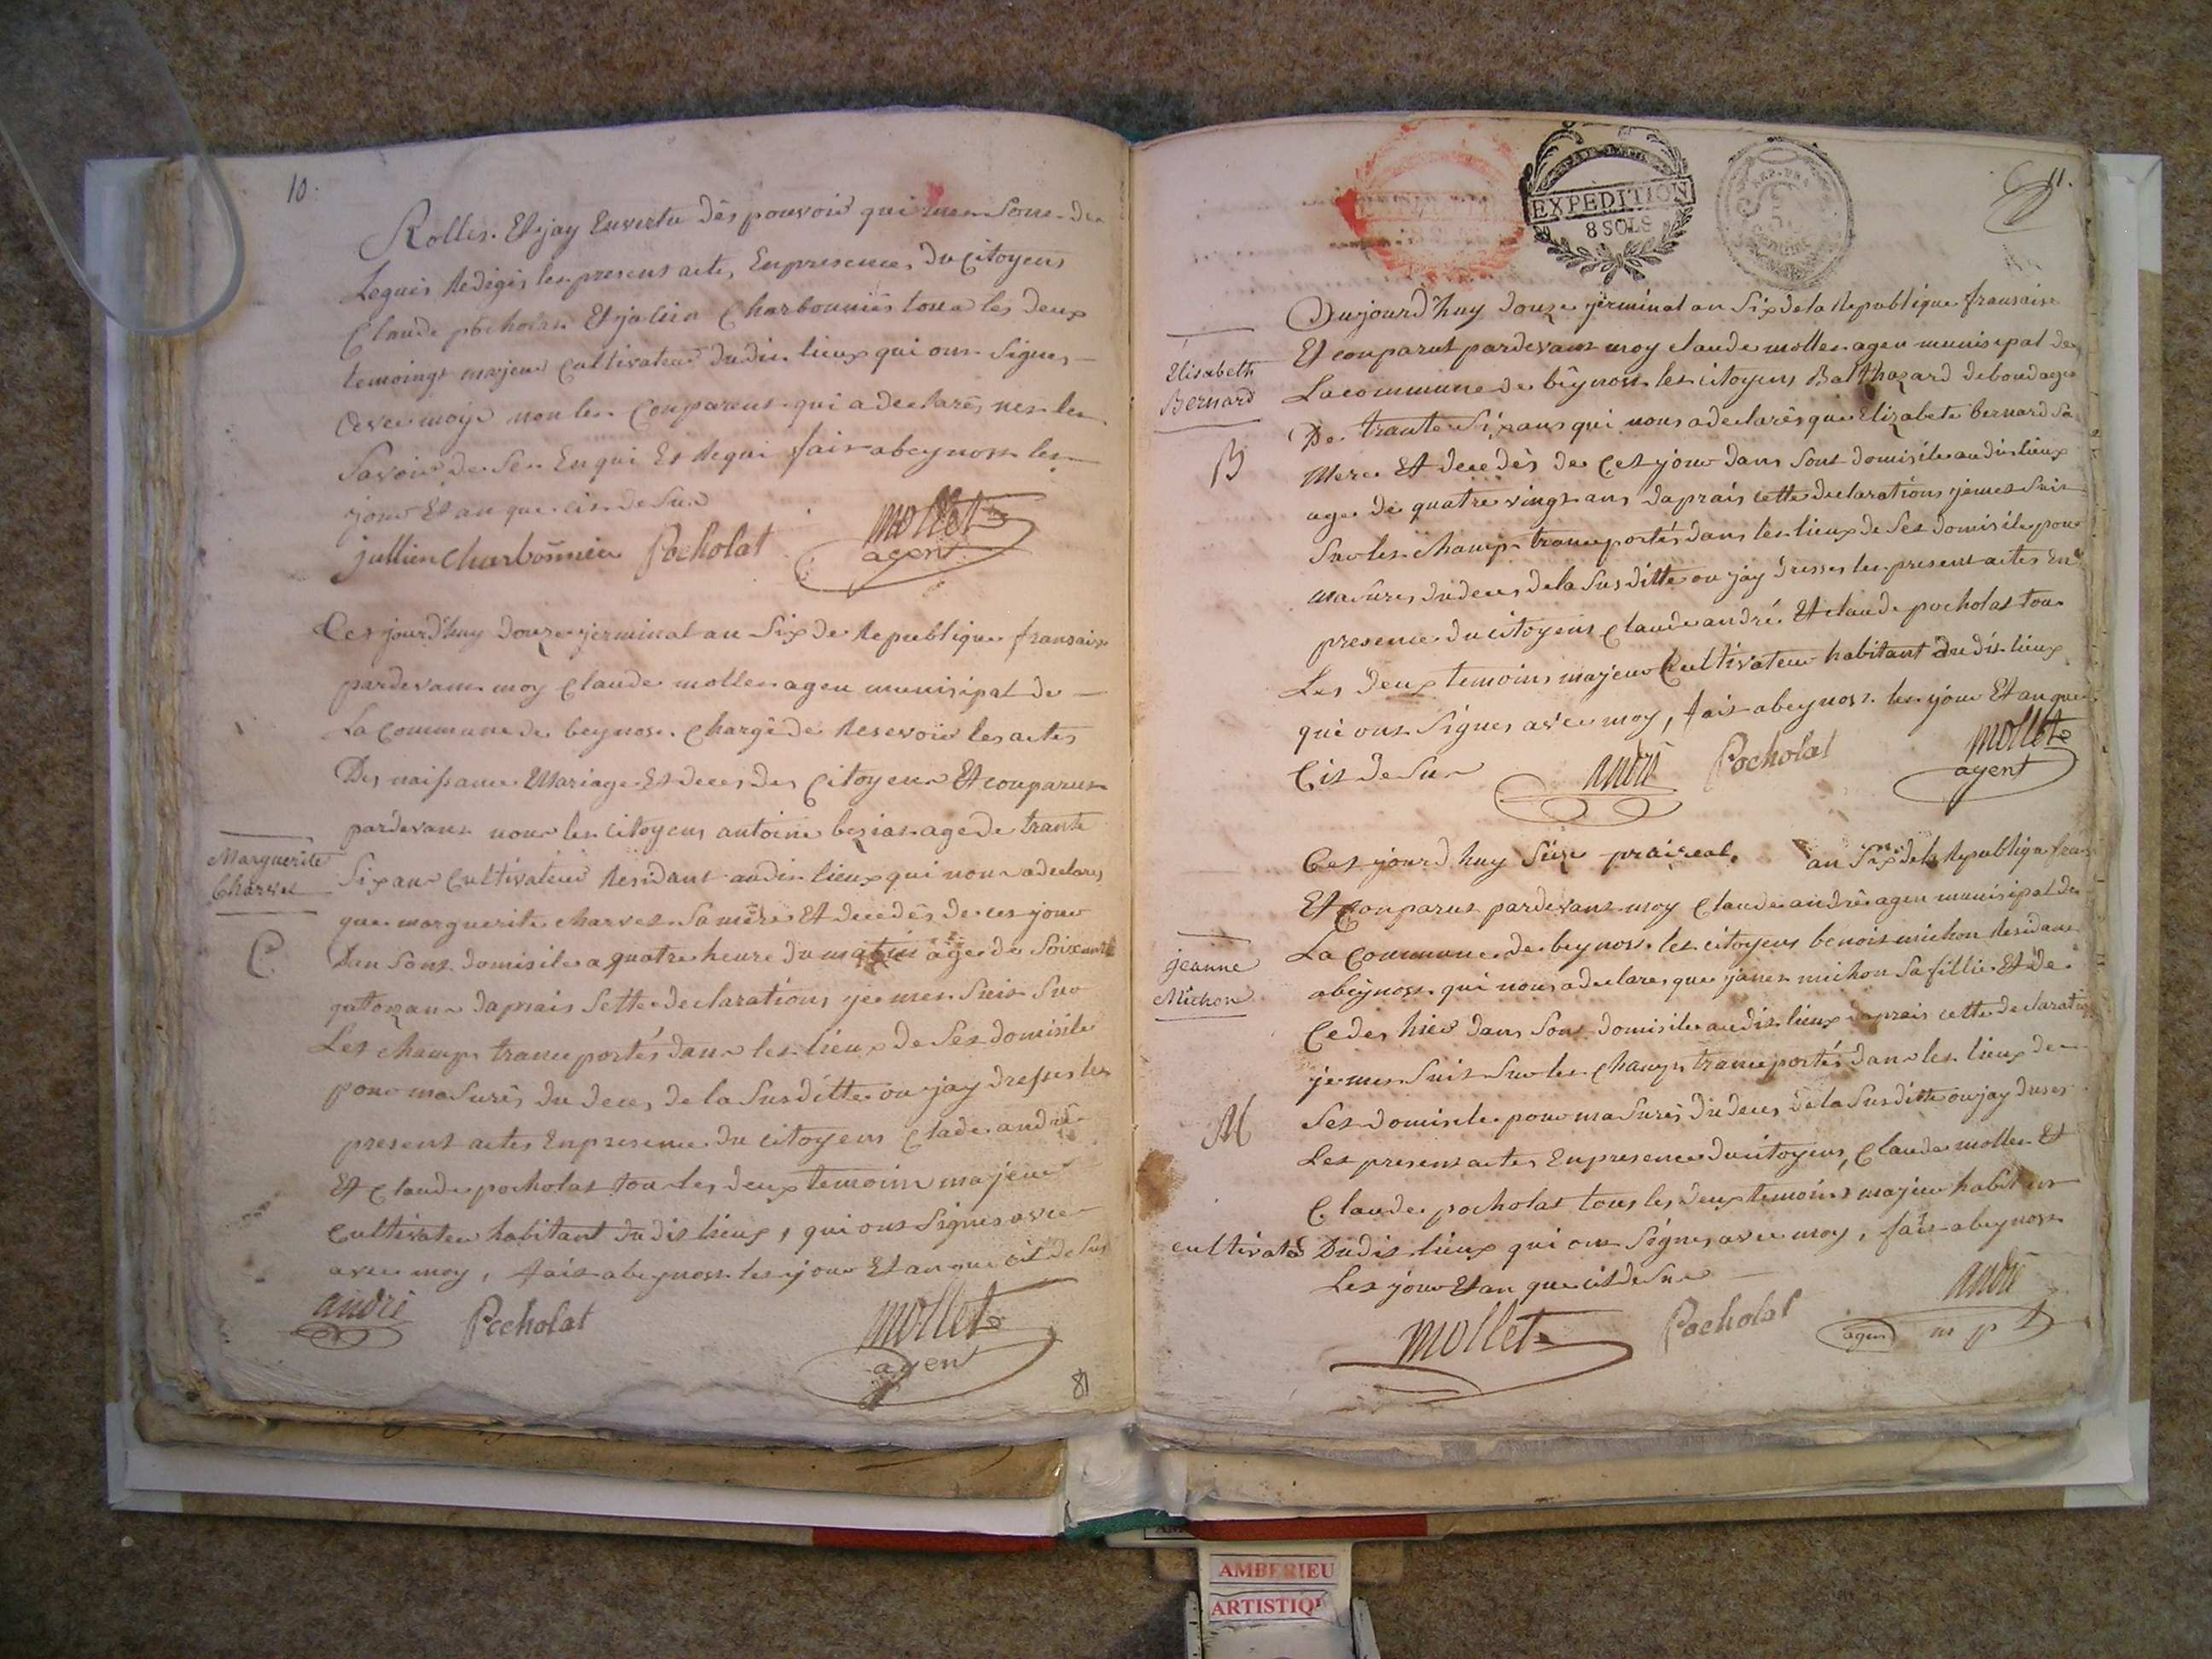 10.
Rolles. Et jay Envertu dès pouvoir qui mes sont de
Leguis Redigis les present actes, En presence, du Citoyens
Claude pocholat Et julien Charbonnies tous les deux
temoings majeur Cultivateur dudit lieux qui ont signes
avec moy non les Comparent qui a declarés nes les
Savoir de ses Enqui Et Requi fait abeynost les
jour Et an que cis desur
jullien Charbonnier Pocholat mollet
agent
Ces jourd'huy douze jerminal an Six de Republique fransaise
pardevant moy Claude mollet agen munisipal de
La Commune de beynost. Chargé de Resevoir les actes
Des naissance Mariage Et deces des Citoyens Et comparut
pardevant nous les Citoyens antoine bezias age de trante
Marguerite
Charvet
Six ans Cultivateur Residant audit lieux qui nous adeclares
que marguerite charvet Sa mère Et decedés de ces jour
C
Dan sont domisile a quatre heure du matin age de Soixante
quatorze ans daprais Sette declarations je mes suis sur
Les champs transportés dans les lieux de Ses domisile
pour masurés du deces de la Susditte ou jay dresses les
present actes En presence du citoyens Clade andré
Et Claude pocholat tou les deux temoins majeur
Cultivateu habitant du dit lieux, qui ont Signes avec
avec moy, fait abeynost les jour Et an que cit desus
andré Pocholat mollet
agent
81
EXPÉDITION
8 SOLS
REP. FRA
11.
Aujourd'huy douze jerminal an Six de la Republique fransaise
Et comparut pardevant moy claude mollet agen munisipal de
Élisabeth
Bernard
La commune de beynost les citoyens Balthazard deboud age
De trante Six ans qui nous adeclarés que Elizabete bernard Sa
B
Mere Et decedés de Cet jour dans sont domisile audit lieux
age de quatre vingt ans daprais cette declarations je mes suis
Sur les champs transportés dans les lieux de Ses domisile pour
masures du deces de la Susditte ou jay dresses les present actes En
presence du citoyens Claude andré Et claude pocholat tou
Les deux temoins majeur Cultivateur habitant du dit lieux
qui ont signes avec moy, fait abeynost les jour Et an que
Cit desur
andré Pocholat mollet
agent
Ces jourd huy Seize praireal. an Six de la Republique fran
Et Comparut pardevant moy Claude andré agen munisipal de
jeanne
Michon
La Commune de beynost les citoyens benoit michon Residant
abeynost qui nous adeclares que janes michon Sa fillie Et de
Cedes hier dans sont domisile audit lieux daprais cette declaration
je mes suis sur les champs transportés dans les lieux de
M
Ses domisile pour masurés du deces de la Susditte ou jay dreses
Les present actes En presence du citoyens, Claude mollet Et
Claude pocholat tous les deux temoins majeur habitant
cultivateur Dudit lieux qui ont Signes avec moy, fait abeynost
Les jour Et an que cit desur
mollet Pocholat andré
agent m p
AMBERIEU
ARTISTIQU